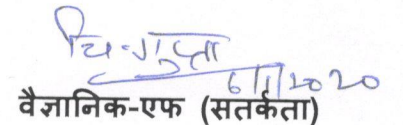 चि. गुप्ता
6/1/2020
वैज्ञानिक-एफ (सतर्कता)